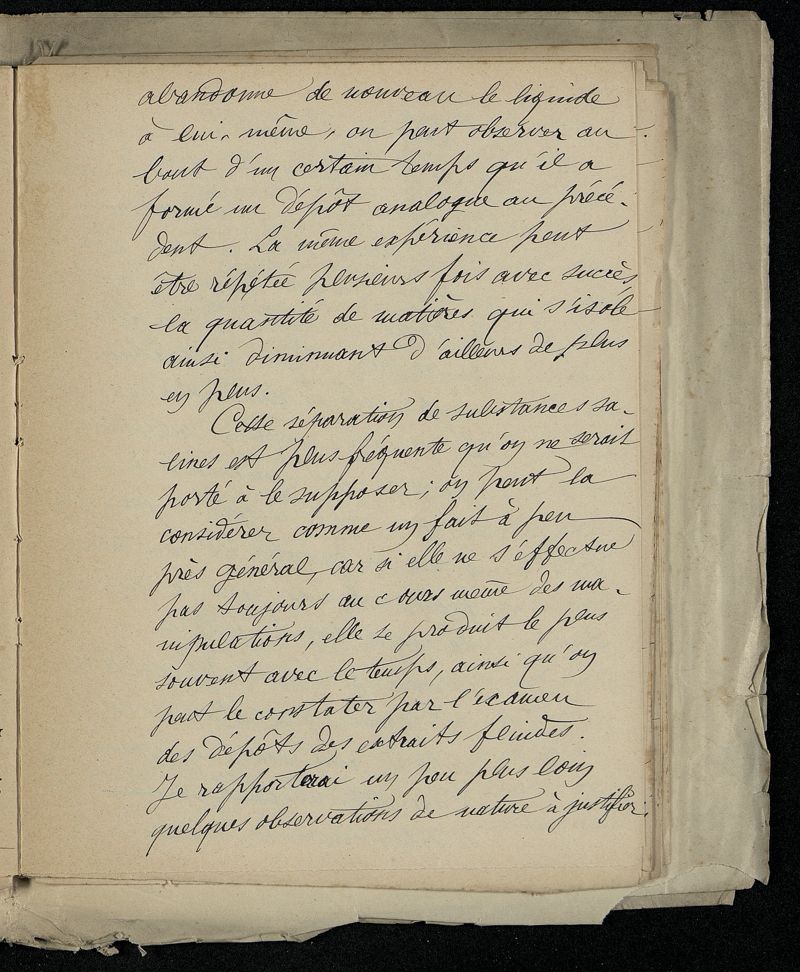 abandonne de nouveau le liquide
à lui-même, on peut observer au
bout d'un certain temps qu'il a
formé un dépôt analogue au précé-
dent. La même expérience peut
être répétée plusieurs fois avec succès,
la quantité de matières qui s'isole
ainsi diminuant d'ailleurs de plus
en plus.
Cette séparation de substances sa-
lines est plus fréquente qu'on ne serait
porté à le supposer; on peut la
considérer comme un fait à peu
près général, car si elle ne s'effectue
pas toujours au cours même des ma-
nipulations, elle se produit le plus
souvent avec le temps, ainsi qu'on
peut le constater par l'examen
des dépôts des extraits fluides.
Je rapporterai un peu plus loin
quelques observations de nature à justifier